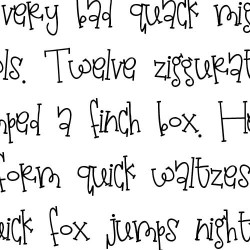 very bad quack mig
ols. Twelve ziggurat
mped a finch box. H
form quick waltzes
uick fox jumps night